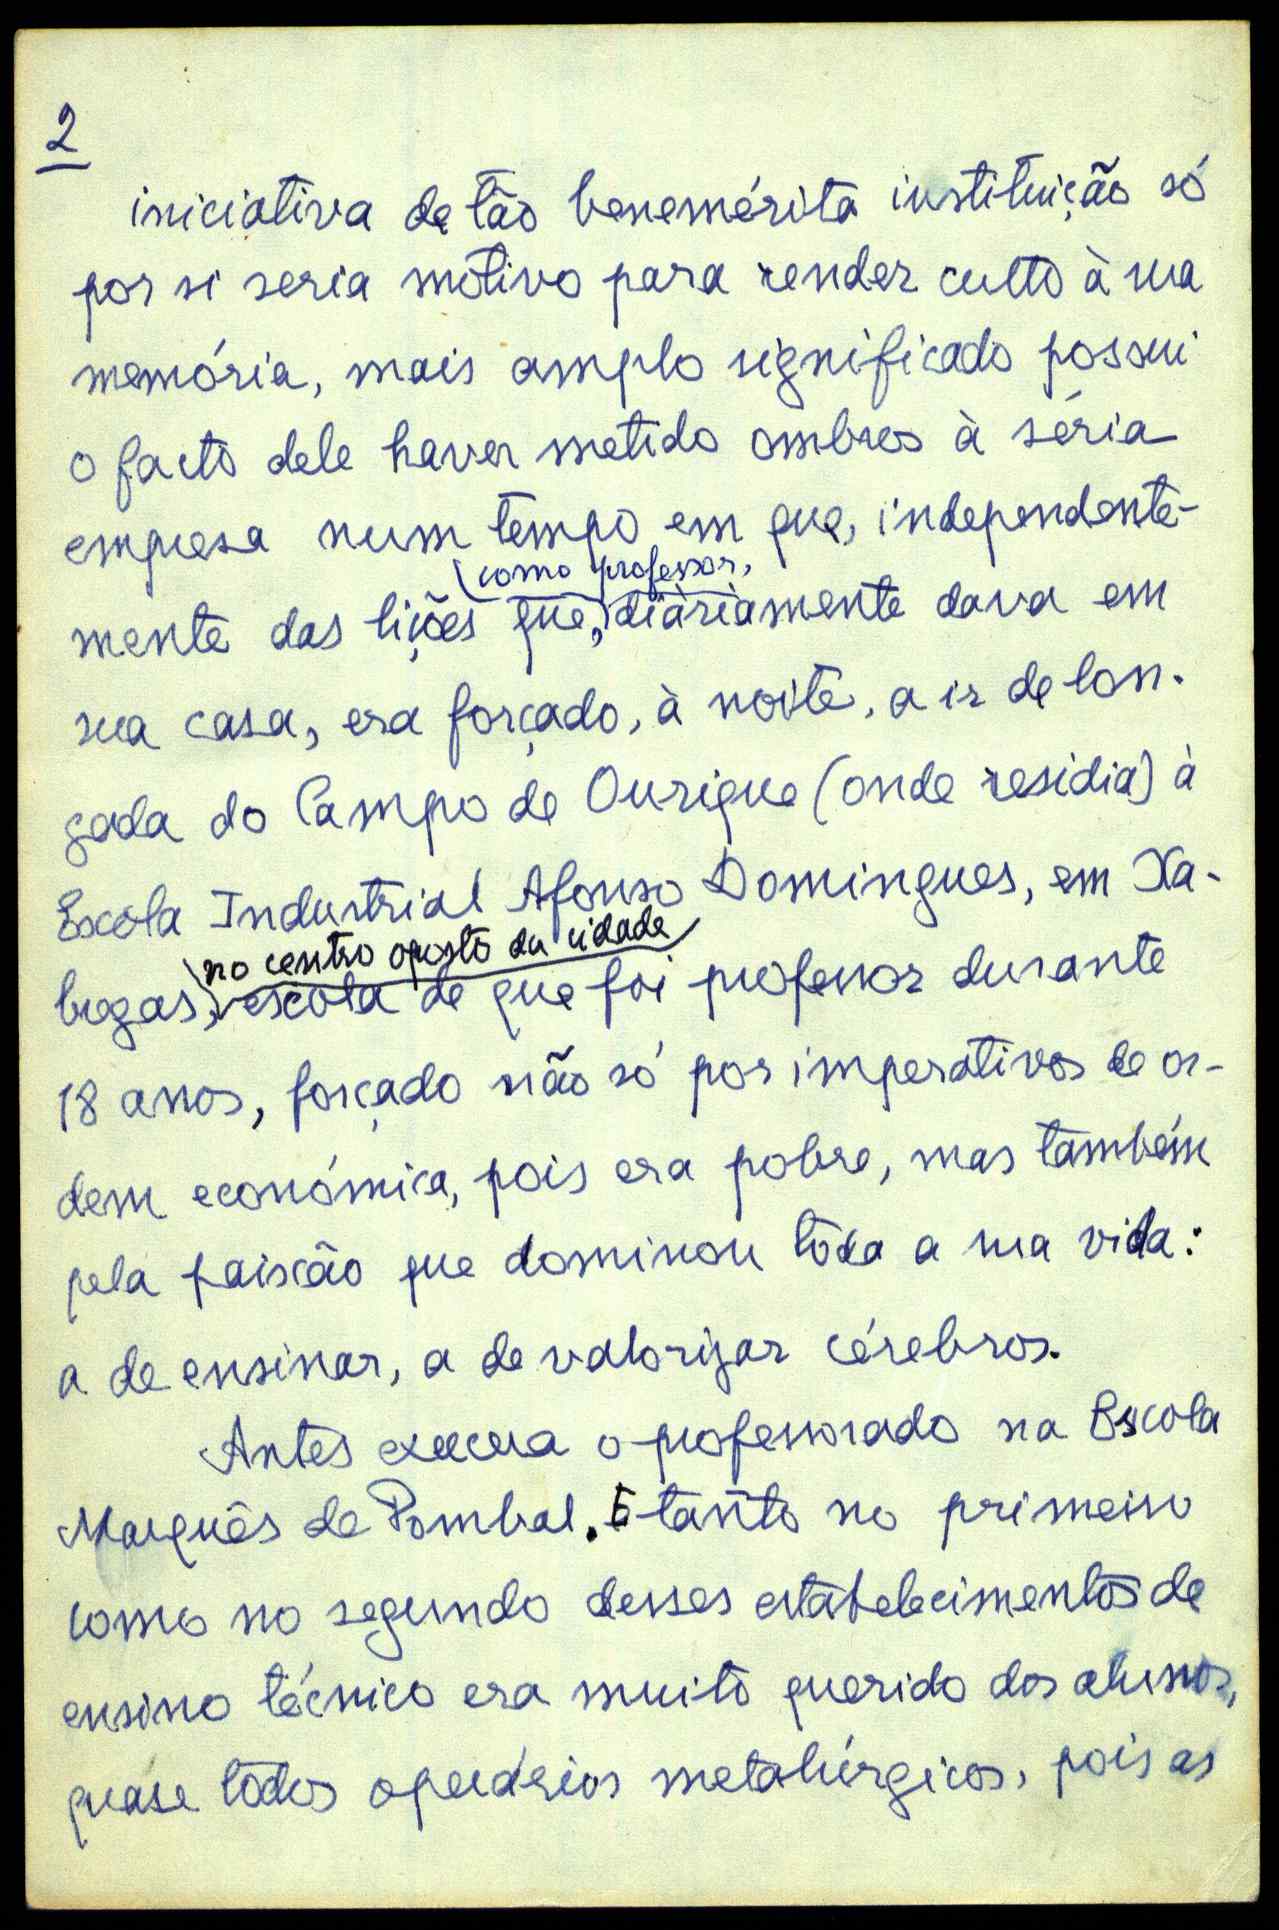 2
iniciativa de tão benemérita instituição só
por si seria motivo para render culto à sua
memória, mais amplo significado possui
o facto dele haver metido ombros à séria
empresa num tempo em que, independente-
como professor,
mente das lições que, diàriamente dava em
sua casa, era forçado, à noite, a ir de lon-
gada do Campo de Ourique (onde residia) à
Escola Industrial Afonso Domingues, em Xa-
no centro oposto da cidade
bregas, escola de que foi professor durante
18 anos, forçado não só por imperativos de or-
dem económica, pois era pobre, mas também
pela paixão que dominou tôda a sua vida:
a de ensinar, a de valorizar cérebros.
Antes exercera o professorado na Escola
Marquês de Pombal. E tanto no primeiro
como no segundo desses estabelecimentos de
ensino técnico era muito querido dos alunos,
quase todos operários metalúrgicos, pois as